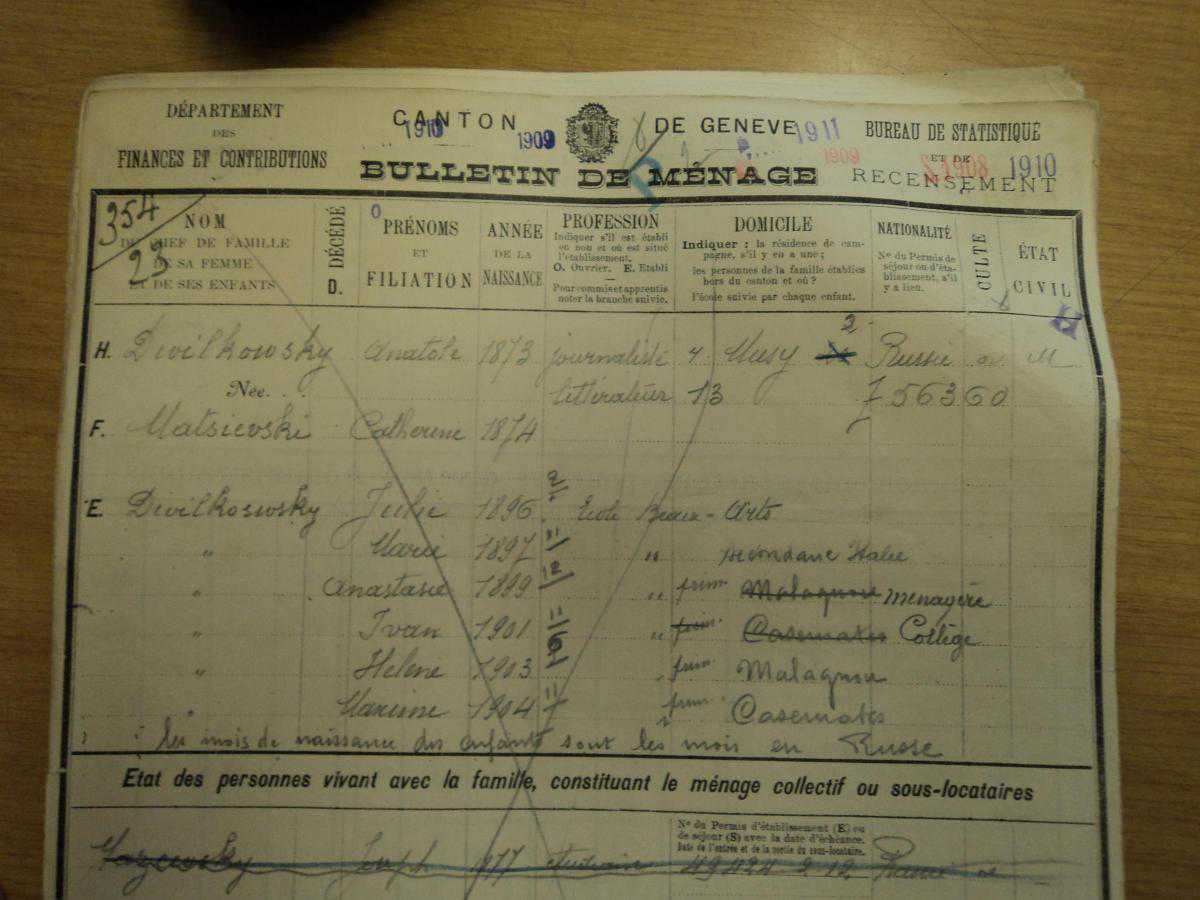 DÉPARTEMENT
DES
FINANCES ET CONTRIBUTIONS
CANTON DE GENÈVE
1910 1909 1911
1909
BULLETIN DE MÉNAGE
BUREAU DE STATISTIQUE
ET DE
RECENSEMENT
1908 1910
354
23
NOM
DU CHEF DE FAMILLE
DE SA FEMME
ET DE SES ENFANTS
DÉCÉDÉ
D.
PRÉNOMS
ET
FILIATION
ANNÉE
DE LA
NAISSANCE
PROFESSION
Indiquer s'il est établi
ou non et où est situé
l'établissement.
O. Ouvrier. E. Etabli
Pour commis et apprentis
noter la branche suivie.
DOMICILE
Indiquer : la résidence de cam-
pagne, s'il y en a une;
les personnes de la famille établies
hors du canton et où ?
l'école suivie par chaque enfant.
NATIONALITÉ
No du Permis de
séjour ou d'éta-
blissement, s'il
y a lieu.
CULTE
ÉTAT
CIVIL
H. Divilkowsky Anatole 1873 journaliste 4 Musy 2 Russie or M
Née. . . littérateur 13 56360
F. Matsievski Catherine 1874
E. Divilkosvsky Julie 1896 2/ Ecole Beaux-Arts
" Marie 1897 11/ " secondaire Italie
" Anastasie 1899 12/ " prim. Malagnou ménagère
" Ivan 1901 11/ " prim. Casemates Collège
" Helene 1903 6/ " prim. Malagnou
" Maxime 1904 11/ prim. Casemates
les mois de naissance des enfants sont les mois en Russe
Etat des personnes vivant avec la famille, constituant le ménage collectif ou sous-locataires
No du Permis d'établissement (E) ou
de séjour (S) avec la date d'échéance.
Date de l'entrée et de la sortie du sous-locataire.
Joseph 1877 49424 2.12 Russie or